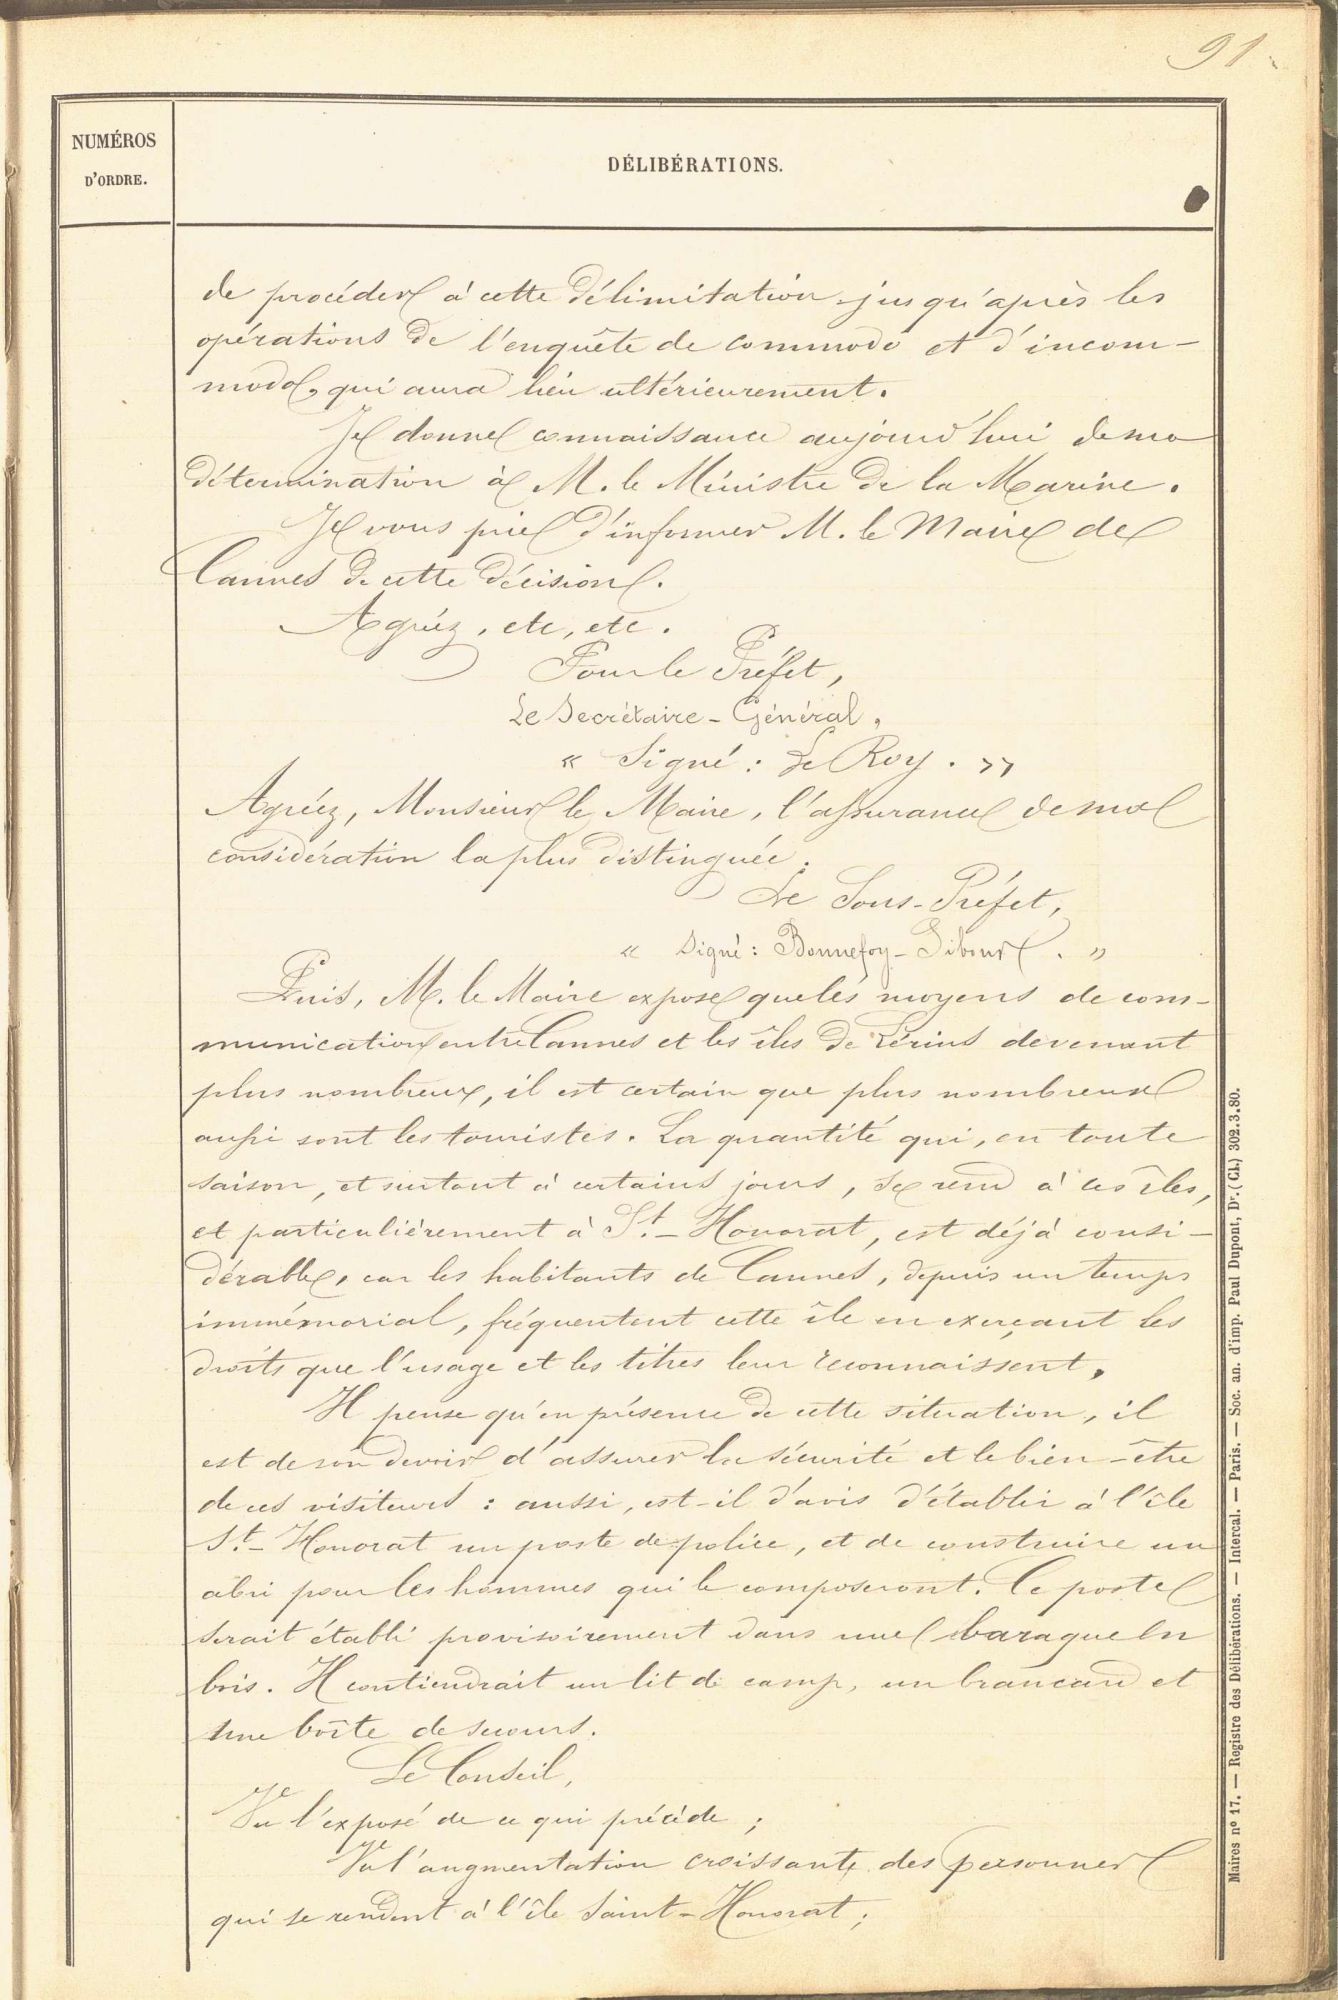 91
NUMÉROS
D'ORDRE.
DÉLIBÉRATIONS.
de procéder à cette délimitation jusqu'après les
opérations de l'enquête de commodo et d'incom-
modo, qui aura lieu ultérieurement.
Je donne connaissance aujourd'hui de ma
détermination à M. le Ministre de la Marine.
Je vous prie d'informer M. le Maire de
Cannes de cette décision.
Agréez, etc, etc.
Pour le Préfet,
Le Secrétaire-Général,
« Signé : Le Roy. »
Agréez, Monsieur le Maire, l'assurance de ma
considération la plus distinguée.
Le Sous-Préfet,
« Signé : Bonnefoy-Sibour. »
Puis, M. le Maire expose que les moyens de com-
munication entre Cannes et les îles de Lérins devenant
plus nombreux, il est certain que plus nombreux
aussi sont les touristes. La quantité qui, en toute
saison, et surtout à certains jours, se rend à ces îles,
et particulièrement à St.-Honorat, est déjà consi-
dérable, car les habitants de Cannes, depuis un temps
immémorial, fréquentent cette île en exerçant les
droits que l'usage et les titres leur reconnaissent.
Il pense qu'en présence de cette situation, il
est de son devoir d'assurer la sécurité et le bien-être
de ces visiteurs : aussi, est-il d'avis d'établir à l'île
St.-Honorat un poste de police, et de construire un
abri pour les hommes qui le composeront. Ce poste
serait établi provisoirement dans une baraque en
bois. Il contiendrait un lit de camp, un brancard et
une boîte de secours.
Le Conseil,
Vu l'exposé de ce qui précède ;
Vu l'augmentation croissante des personnes
qui se rendent à l'île Saint-Honorat ;
Maires nº 17. — Registre des Délibérations. — Intercal. — Paris. — Soc. an. d'imp. Paul Dupont, Dr. (Cl.) 302.3.80.